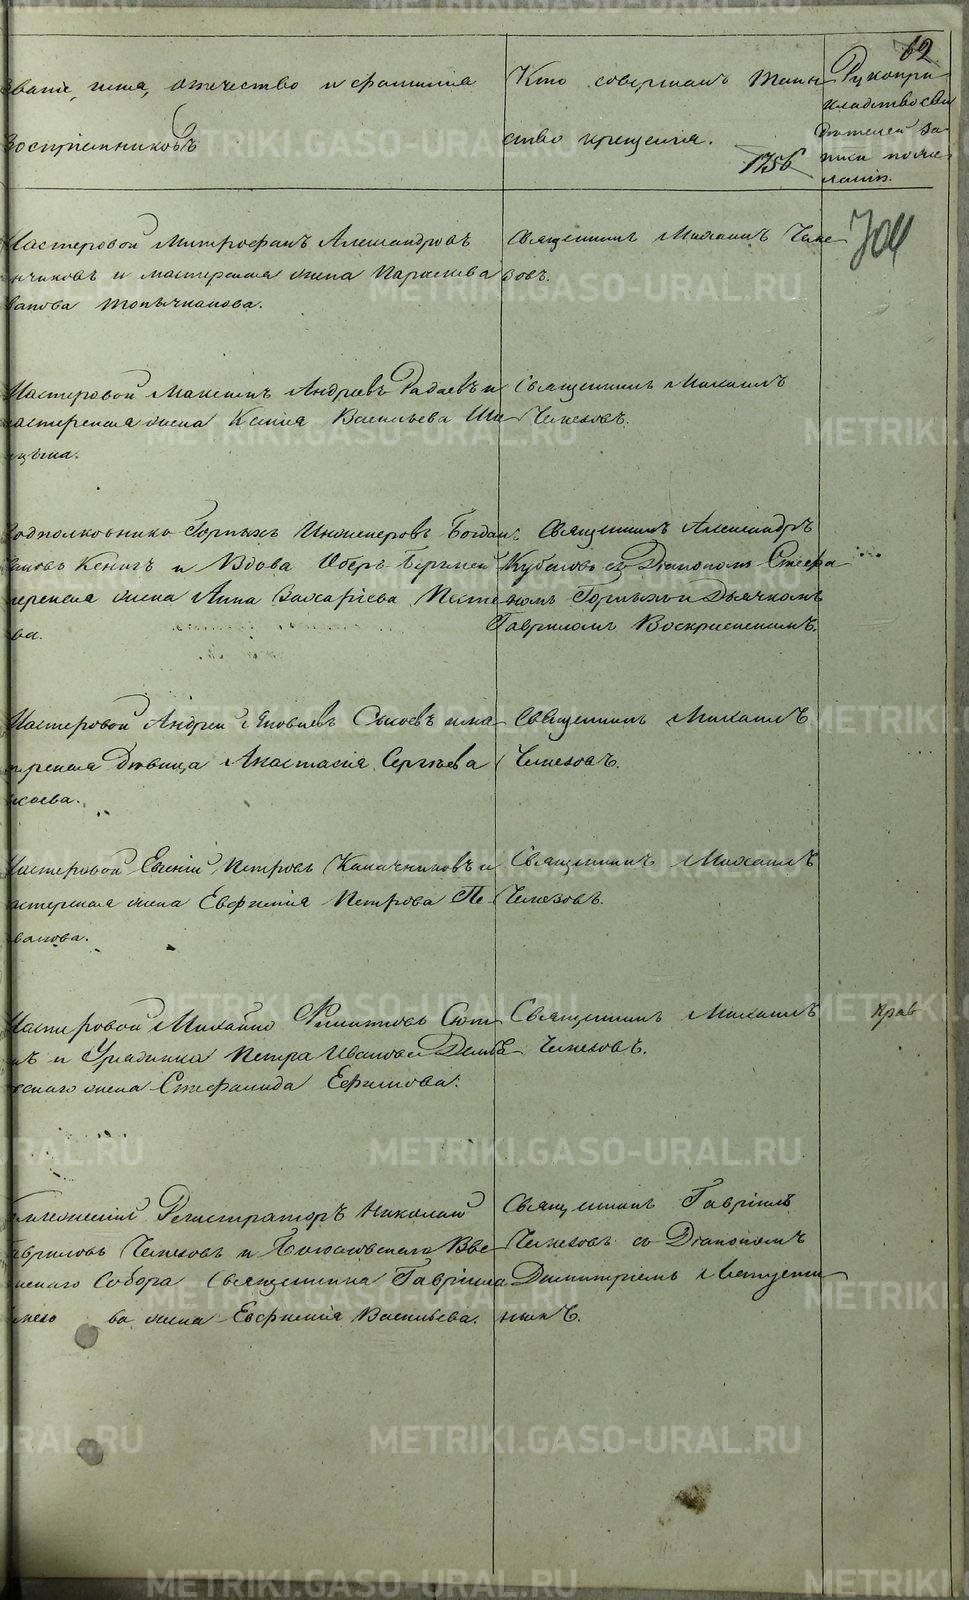 62
Званіе, имя, отечество и фамилія
воспріемниковъ
Кто совершалъ таин-
ство крещенія.
1756
Рукопри
кладство сви
дѣтелей за
писи по же
ланію.
704
Мастеровой Митрофанъ Александровъ
нчиковъ и мастерская жена Параскева
ванова Топычканова.
Священникъ Михаилъ Чeме
зовъ.
Мастеровой Максимъ Андреевъ Радаевъ и
мастерская жена Ксенія Васильева Ши
цына.
Священникъ Михаилъ
Чемезовъ.
Подполковникъ Горныхъ Инженеровъ Богданъ
Кенигъ и Вдова Оберъ Бергмей
жена Анна Захаріева
ва.
Священникъ Александръ
съ Діакономъ Стефа
номъ Горныхъ и Дьячкомъ
Гавріиломъ Воскресенскимъ.
Мастеровой Андрей Яковлевъ Сысоевъ и ма
стерская Дѣвица Анастасія Сергѣева
Священникъ Михаилъ
Чемезовъ.
Мастеровой Евсевій Петровъ Калачниковъ и
мастерская жена Евфимія Петрова Пе
ванова.
Священникъ Михаилъ
Чемезовъ.
Мастеровой Михайло Филиповъ Сюти
нъ и Урядника Петра Иванова
скаго жена Стефанида Ефимова.
Священникъ Михаилъ
Чемезовъ.
Крав
Коллежскій Регистраторъ Николай
Гавриловъ Чемезовъ и Богословскаго Вве
денскаго Собора Священника Гавріила
Чемезо ва жена Евфимія Васильева.
Священникъ Гавріилъ
Чемезовъ со Діакономъ
Димитріемъ
нымъ.
METRIKI.GASO-URAL.RU